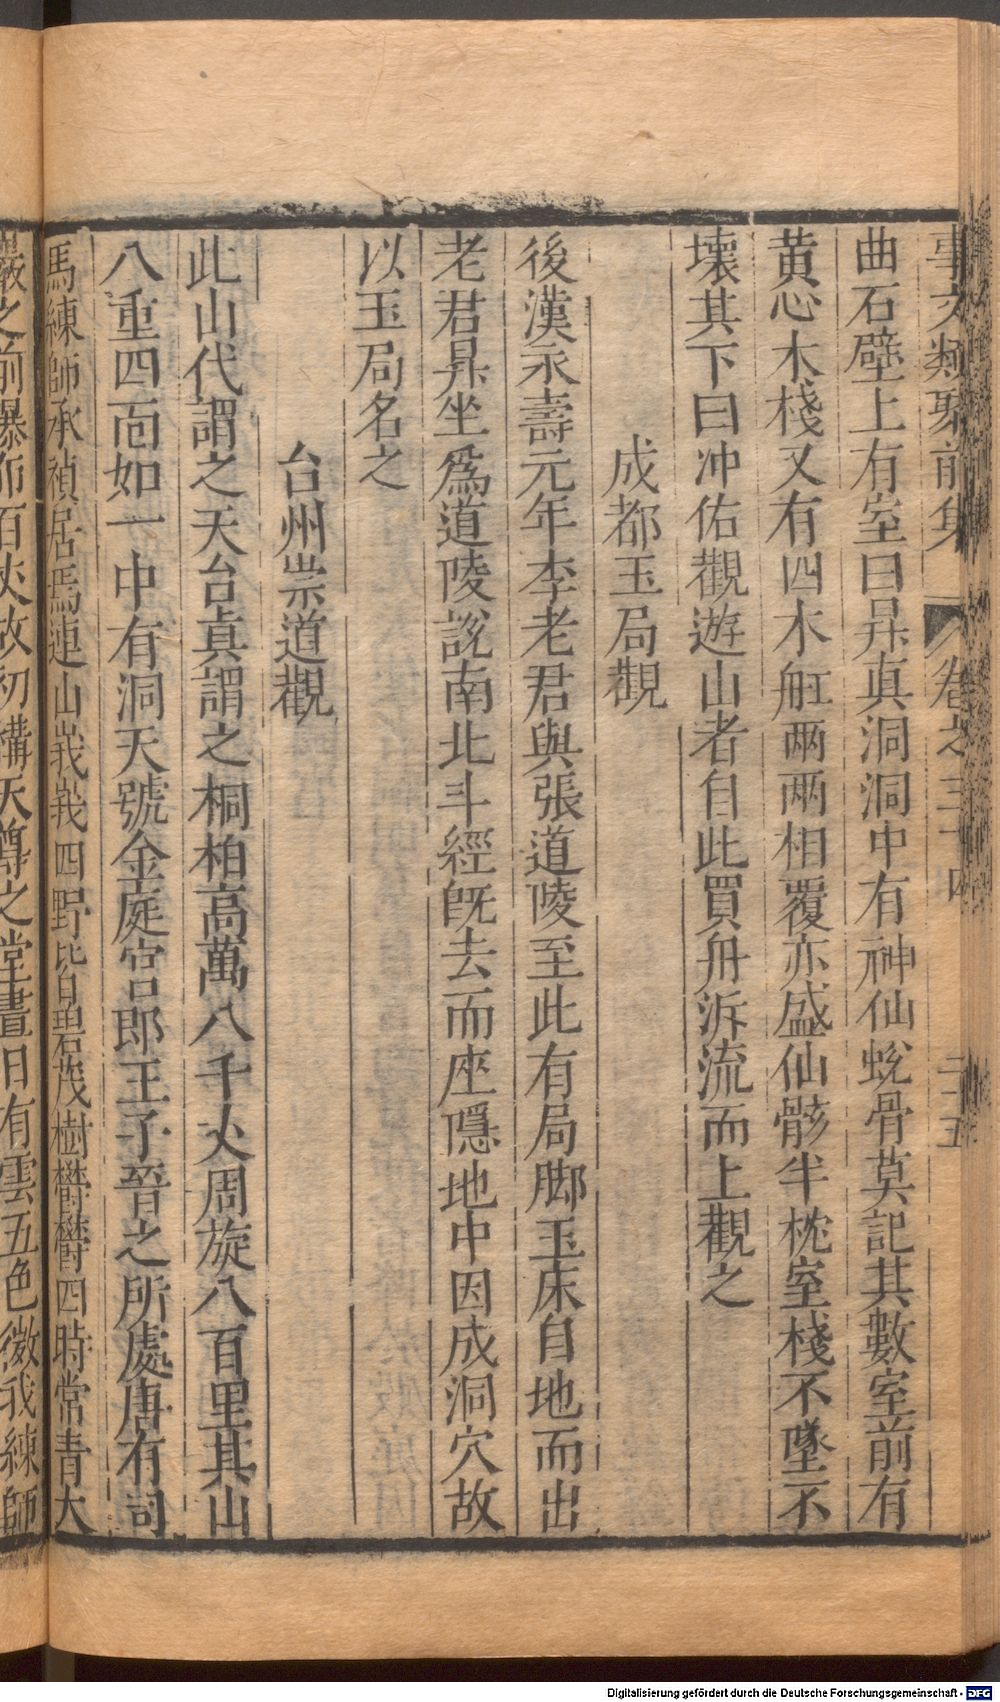 事文類聚前集 卷之三十四 二十五
曲石壁上有室曰昇真洞洞中有神仙蛻骨莫記其數室前有
黄心木棧又有四木舡兩兩相覆亦盛仙骸半枕室棧不墜不
壞其下曰冲佑觀遊山者自此買舟泝流而上觀之
成都玉局觀
後漢永壽元年李老君與張道陵至此有局脚玉床自地而出
老君昇坐爲道陵說南北斗經既去而座隱地中因成洞穴故
以玉局名之
台州崇道觀
此山代謂之天台真謂之桐柏高萬八千丈周旋八百里其山
八重四面如一中有洞天號金庭宮品即王子晉之所處唐有司
馬練師承禎居焉連山峩峩四野皆碧茂樹欝欝四時常青大
巖之前瀑布百丈故初構天尊之堂晝日有雲五色徵我練師
Digitalisierung gefördert durch die Deutsche Forschungsgemeinschaft - DFG